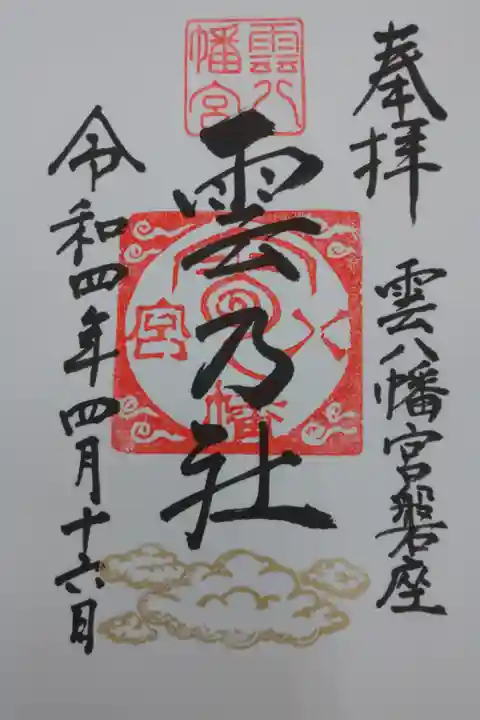 奉拝
雲八幡宮磐座
雲八幡宮
雲乃社
雲八幡宮
令和四年四月十六日